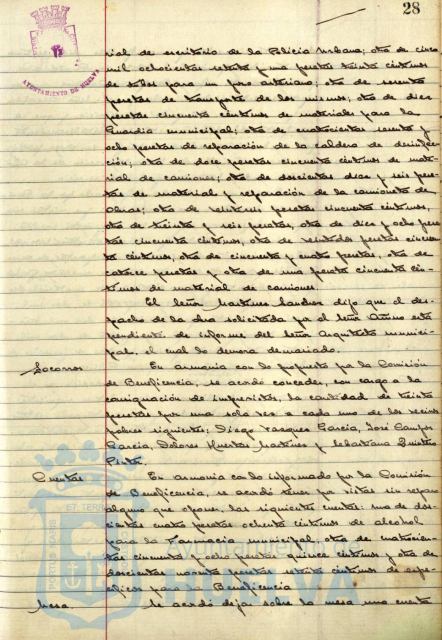 28
AYUNTAMIENTO DE HUELVA
rial de escritorio de la Policia Urbana; otra de cinco
mil ochocientas setenta y una pesetas treinta centimos
de tubos para un pozo artesiano; otra de sesenta
pesetas de transporte de los mismos, otra de diez
pesetas cincuenta centimos de materiales para la
Guardia municipal; otra de cuatrocientas sesenta y
ocho pesetas de reparación de la caldera de desinfec-
ción; otra de doce pesetas cincuenta centimos de mate-
rial de camiones; otra de doscientas diez y seis pese-
tas de material y reparación de la camioneta de
Obras; otra de veintiuna pesetas cincuenta centimos,
otra de treinta y seis pesetas, otra de diez y ocho pese-
tas cincuenta centimos, otra de veintidos pesetas cincuen-
ta centimos, otra de cincuenta y cuatro pesetas, otra de
catorce pesetas y otra de una peseta cincuenta cén-
timos de material de camiones.
El Señor Martinez Sanchez dijo que el des-
pacho de la solicitada por el Señor está
pendiente de informe del Señor Arquitecto munici-
pal, el cual lo demora demasiado.
Socorros
En armonia con lo propuesto por la Comisión
de Beneficencia, se acordó conceder, con cargo a la
consignación de imprevistos, la cantidad de treinta
pesetas por una sola vez a cada uno de los vecinos
pobres siguientes; Diego Vazquez Garcia, José Campos
Garcia, Dolores Huertas Martinez y Sebastiana Quintero
Pinto.
Cuentas
En armonia con lo informado por la Comisión
de Beneficencia, se acordó tener por vistas sin repa-
ro alguno que oponer, las siguientes cuentas: una de dos-
cientas cuatro pesetas ochenta centimos de alcohol
para la Farmacia municipal, otra de cuatrocien-
tas cincuenta y ocho pesetas quince centimos y otra de
doscientas noventa pesetas setenta centimos de espe-
cificos para la Beneficencia
Mesa.
Se acordó dejar sobre la mesa una cuenta
PORTUS MARIS
ET TERRAE
HUELVA